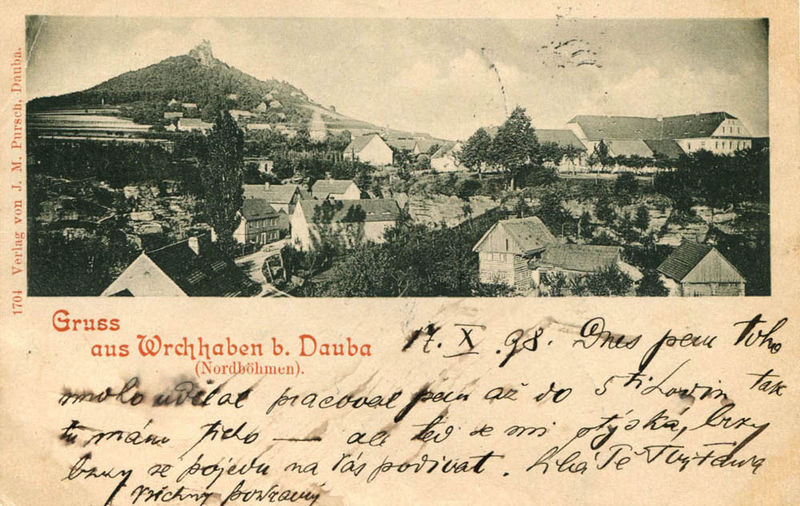 1704 Verlag von J. M. Pursch, Dauba.
Gruss
aus Wrchhaben b. Dauba
(Nordböhmen).
17. X. 98. Dnes jsem Toho
moho udělal pracoval jsem až do 5 ti tak
tu mám – ale teď se mi stýská, brzy
brzy se pojedu na Vás podívat. Líbá Tě Tvůj
všechny pozdravuj